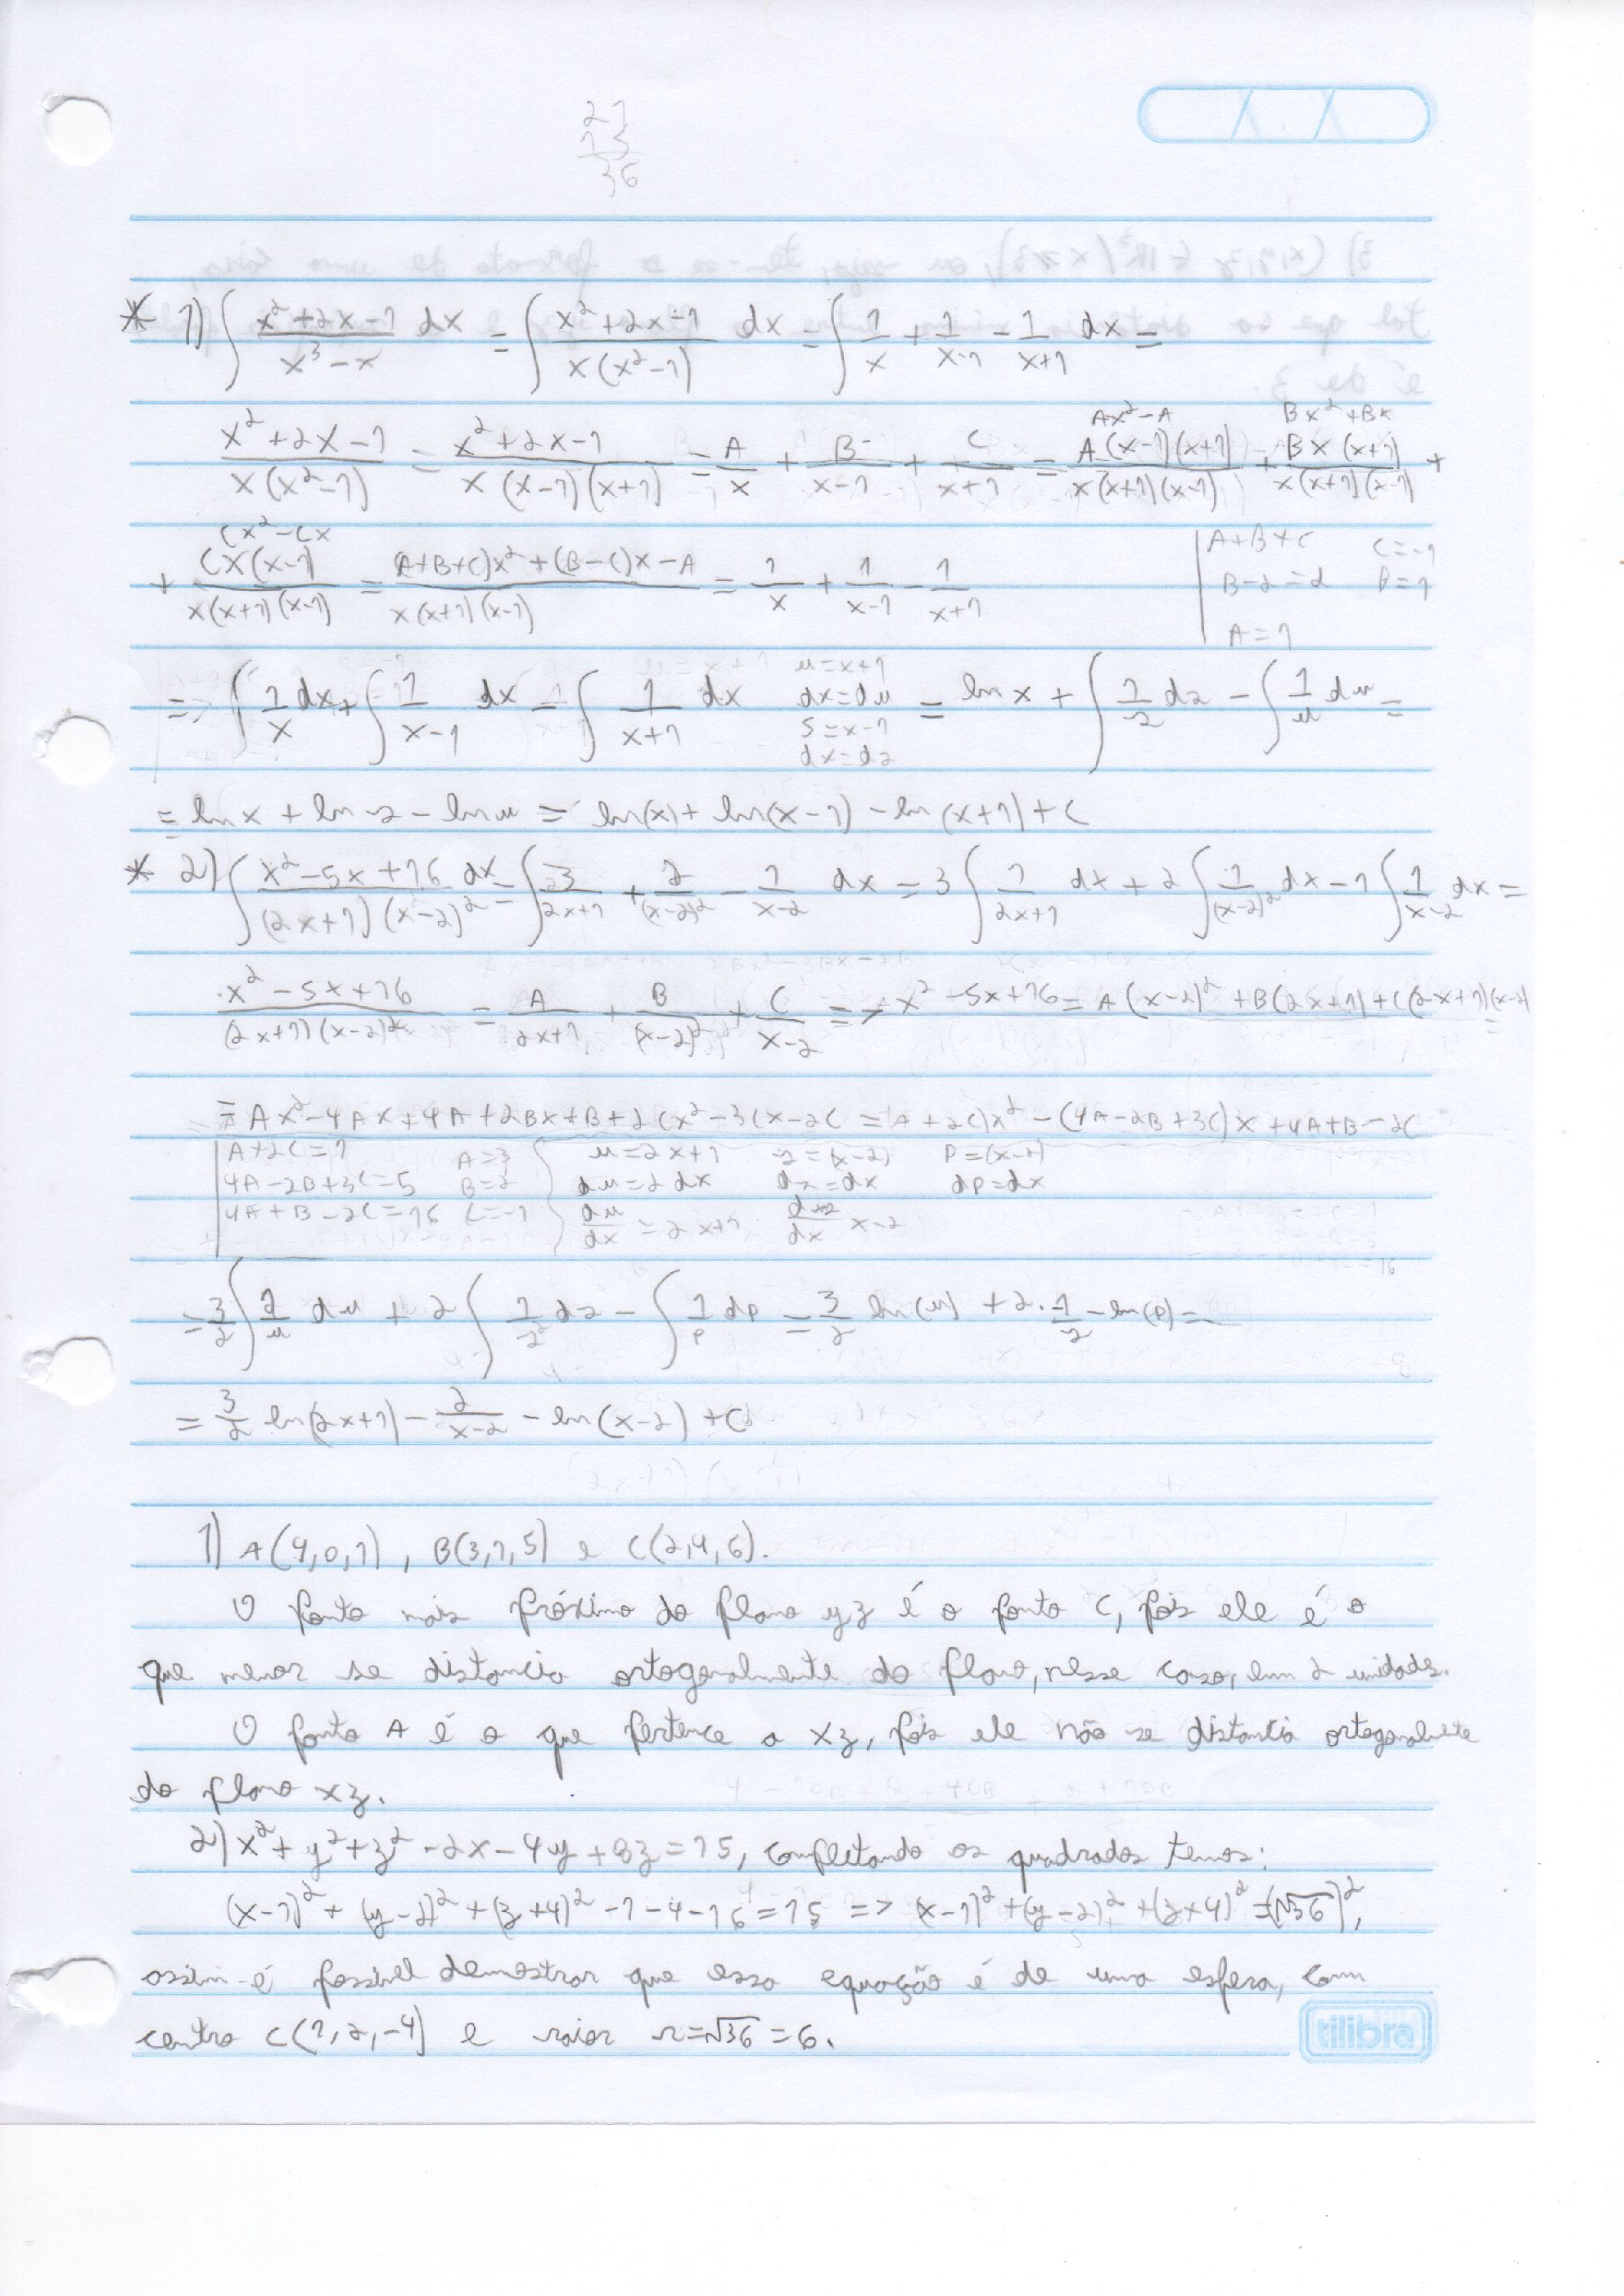 21
15
36
* 1) ∫ x²+2x-1 / x³-x dx = ∫ x²+2x-1 / x(x²-1) dx = ∫ 1/x + 1/x-1 - 1/x+1 dx =
Ax²-A Bx²+Bx
x²+2x-1 / x(x²-1) = x²+2x-1 / x(x-1)(x+1) = A/x + B/x-1 + C/x+1 = A(x-1)(x+1) / x(x+1)(x-1) + Bx(x+1) / x(x+1)(x-1) +
Cx²-Cx
+ Cx(x-1) / x(x+1)(x-1) = A+B+C)x²+(B-C)x-A / x(x+1)(x-1) = 1/x + 1/x-1 - 1/x+1
A+B+C C=-1
B-2=2 B=1
A=1
=> ∫ 1/x dx + ∫ 1/x-1 dx - ∫ 1/x+1 dx
u=x+1
dx=du
s=x-1
dx=dz
= ln x + ∫ 1/z dz - ∫ 1/u du =
= ln x + ln z - ln u = ln(x) + ln(x-1) - ln(x+1) + C
* 2) ∫ x²-5x+16 / (2x+1)(x-2)² dx = ∫ 3/2x+1 + 2/(x-2)² - 1/x-2 dx = 3 ∫ 1/2x+1 dx + 2 ∫ 1/(x-2)² dx - 1 ∫ 1/x-2 dx =
x²-5x+16 / (2x+1)(x-2)² = A/2x+1 + B/(x-2)² + C/x-2 => x²-5x+16 = A(x-2)²+B(2x+1)+C(2x+1)(x-2) =
= Ax²-4Ax+4A+2Bx+B+2Cx²-3Cx-2C = A+2C)x²-(4A-2B+3C)x+4A+B-2C
A+2C=1 A=3 u=2x+1 z=(x-2) p=(x-2)
4A-2B+3C=5 B=2 du=2dx dz=dx dp=dx
4A+B-2C=16 C=-1 du/dx=2x+1 dz/dx x-2
= 3/2 ∫ 1/u du + 2 ∫ 1/z² dz - ∫ 1/p dp = 3/2 ln(u) + 2·-1/z - ln(p) =
= 3/2 ln(2x+1) - 2/x-2 - ln(x-2) + C
1) A(4,0,1), B(3,1,5) e C(2,4,6).
O ponto mais próximo do plano yz é o ponto C, pois ele é o
que menos se distancia ortogonalmente do plano, nesse caso, em 2 unidades.
O ponto A é o que pertence a xz, pois ele não se distancia ortogonalmente
do plano xz.
2) x²+y²+z²-2x-4y+8z=15, completando os quadrados temos:
(x-1)²+(y-2)²+(z+4)²-1-4-16=15 => (x-1)²+(y-2)²+(z+4)²=(√36)²,
assim é possível demostrar que essa equação é de uma esfera, com
centro C(1,2,-4) e raior r=√36=6.
tilibra